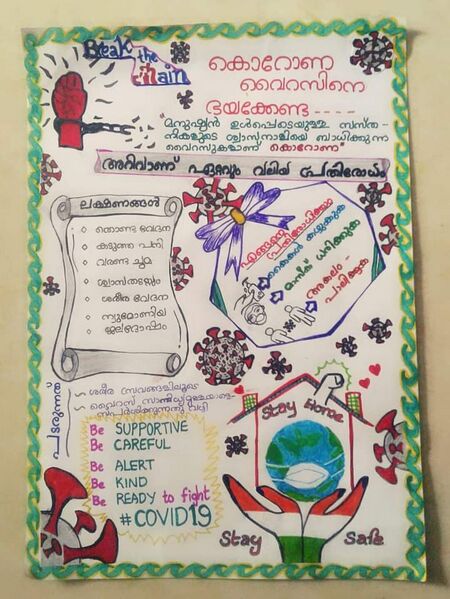 Break the Chain
കൊറോണ
വൈറസിനെ
ഭയക്കേണ്ട ----
"മനുഷ്യൻ ഉൾപ്പെടെയുള്ള സസ്ത-
നികളുടെ ശ്വാസനാളിയെ ബാധിക്കുന്ന
വൈറസുകളാണ് കൊറോണ"
അറിവാണ് ഏറ്റവും വലിയ പ്രതിരോധം
ലക്ഷണങ്ങൾ
തൊണ്ട വേദന
കടുത്ത പനി
വരണ്ട ചുമ
ശ്വാസതടസ്സം
ശരീര വേദന
ന്യുമോണിയ
ജലദോഷം
എങ്ങനെ
പ്രതിരോധിക്കാം
കൈകൾ കഴുകുക
മാസ്ക് ധരിക്കുക
അകലം
പാലിക്കുക
പടരുന്നത്
ശരീര സ്രവങ്ങളിലൂടെ
വൈറസ്
വഴി
Be SUPPORTIVE
Be CAREFUL
Be ALERT
Be KIND
Be READY to fight
#COVID19
Stay Home
Stay Safe